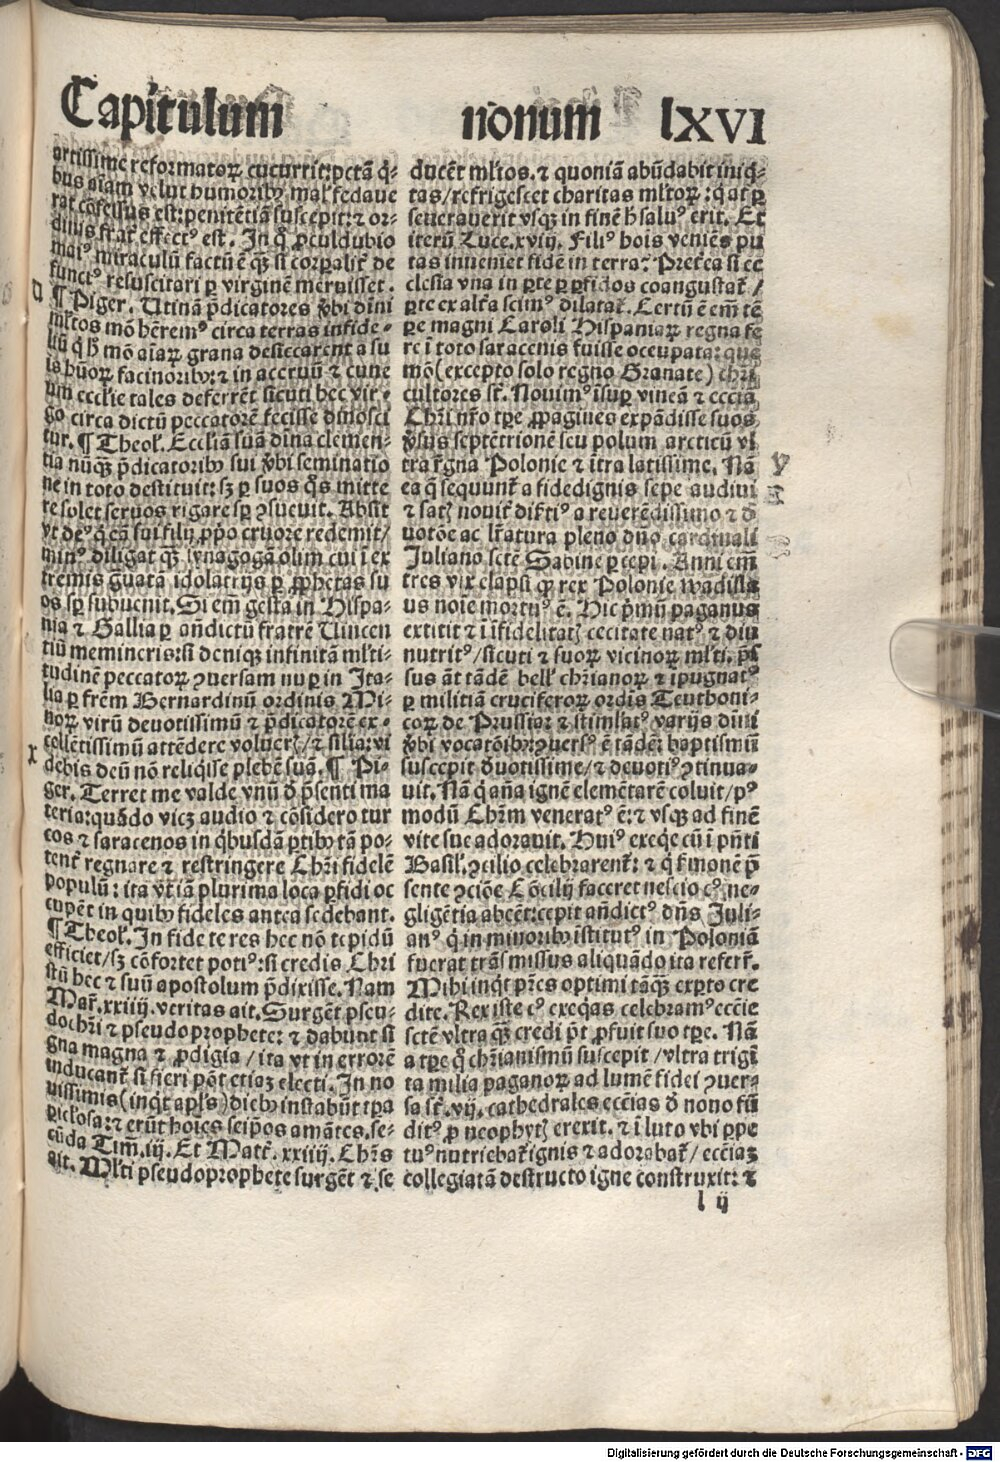 Capitulum nonum lxvi
artissime reformatoꝝ cucurrit: pctā q̇-
bus aīam velut humoribꝰ mal̕ fedaue
rat cōfessus est: penitētiā suscepit: ⁊ or-
dinis frat̄ effect⁹ est. In q̊ ꝓculdubio
mai⁹ miraculū factū ē qꝫ si corꝑalit̄ de
funct⁹ resuscitari ꝑ virginē meruisset.
¶ Piger. Utinā p̄dicatores ỽbi diuini
ml̕tos mō hērem⁹ circa terras infide-
liū q̇ hˀ mō aīaꝝ grana desiccarent a su
is hūoꝝ facinoribꝫ: ⁊ in aceruū ⁊ cune
um ecclie tales deferrēt sicuti hec vir-
go circa dictū peccatorē fecisse dinosci
tur. ¶ Theol̕. Eccliā suā diuina clemen-
tia nūqꝫ p̄dicatoribꝫ sui ỽbi seminatio
ne in toto destituit: sꝫ ꝑ suos q̊s mitte
re solet seruos rigare sꝑ ꝯsueuit. Absit
vt de⁹ q̇ eā sui filij ꝓprio cruore redemit/
min⁹ diligat qꝫ synagogā olim cui ī ex
tremis gͥuata idolatrijs ꝑ ꝓphetas su
os sꝑ subuenit. Si em̄ gesta in Hispa-
nia ⁊ Gallia ꝑ an̄dictū fratrē Uincen
tiū memineris: si deniqꝫ infinitā ml̕ti-
tudinē peccatoꝝ ꝯuersam nuꝑ in Ita-
lia ꝑ frēm Bernardinū ordinis Mi-
noꝝ virū deuotissimū ⁊ p̄dicatorē ex-
cellētissimū attēdere volueris/ ⁊ silia: vi
debis deū nō reliq̇sse plebē suā. ¶ Pi-
ger. Terret me valde vnū ď p̄senti ma
teria: quādo vicꝫ audio ⁊ cōsidero tur
cos ⁊ saracenos in q̇busdā ꝑtibꝫ tā po-
tent̄ regnare ⁊ restringere Chr̄i fidelē
populū: ita vt iā plurima loca ꝑfidi oc
cupēt in quibꝫ fideles antea sedebant.
¶ Theol̕. In fide te res hec nō tepidū
efficiet/ sꝫ cōfortet poti⁹: si credis Chri
stū hec ⁊ suū apostolum p̄dixisse. Nam
Mat̄. xxiiij. veritas ait. Surgēt pseu-
dochr̄i ⁊ pseudoprophete: ⁊ dabunt si
gna magna ⁊ ꝓdigia/ ita vt in errorē
inducant̄ si fieri pōt etiaꝫ electi. In no
uissimis (inq̇t apl̕s) diebꝫ instabūt tꝑa
ꝑicl̕osa: ⁊ erūt hoīes seipos amātes. se-
cūda Tim̄. iij. Et Matt̄. xxiiij. Chr̄s
ait. Ml̕ti pseudoprophete surgēt ⁊ se
v
x
ducēt ml̕tos. ⁊ quoniā abūdabit iniq̇-
tas/ refrigescet charitas ml̕toꝝ: q̇ at̄ ꝑ
seuerauerit vsqꝫ in finē h̊ salu⁹ erit. Et
iterū Luce. xviij. Fili⁹ hoīs veniēs pu
tas inueniet fidē in terra? Pretea si ec
clesia vna in ꝑte ꝑ ꝑfidos coangustat̄/
ꝑte ex alťa scim⁹ dilatat̄. Certū ē em̄ tē
ꝑe magni Caroli Hispaniaꝝ regna fe
re ī toto saracenis fuisse occupata: que
mō (excepto solo regno Granate) chr̄i
cultores st̄. Nouim⁹ īsuꝑ vinea ⁊ eccīa
Chr̄i nr̄o tꝑe ꝓpagines expādisse suos
ỽsus septētrionē seu polum arcticū vl
tra r̄gna Polonie ⁊ īt̄ra latissime. Nā
ea q̄ sequunt̄ a fidedignis sepe audiui
⁊ satꝭ nouit̄ dist̄ti⁹ a reuerēdissimo ⁊ ď
uotōe ac lr̄atura pleno dn̄o cardinali
Juliano scte Sabine ꝑcepi. Anni em̄
tres vix elapsi q̊ꝝ rex Polonie wadisla
us noīe mortu⁹ ē. Hic p̄mū paganus
extitit ⁊ ī īfidelitatꝭ cecitate nat⁹ ⁊ diu
nutrit⁹/ sicuti ⁊ suoꝝ vicinoꝝ ml̕ti. p̄s
sus āt tādē bell̕ chr̄ianoꝝ ⁊ īpugnat⁹
ꝑ militiā cruciferoꝝ ordīs Teuthoni-
coꝝ de Prussia: ⁊ stimulat⁹ varijs diuī
ỽbi vocatōibꝫ: ꝯuers⁹ ē tādē: baptismū
suscepit ďuotissime/ ⁊ deuoti⁹ ꝯtinua-
uit. Nā q̇ an̄a ignē elemētarē coluit/ p⁹
modū Chr̄m venerat⁹ ē: ⁊ vsqꝫ ad finē
vite sue adorauit. Hui⁹ exeq̇e cū ī pn̄ti
Basil̕. ꝯcilio celebrarent̄: ⁊ q̇ f̕monē p̄
sente ꝯciōe Cōcilij faceret nescio c⁹ ne-
gligētia abeēt: cepit an̄dict⁹ dn̄s Juli-
an⁹ q̇ in minoribꝫ īstitut⁹ in Poloniā
fuerat trāsmissus aliquādo ita referr̄.
Mihi inq̇t pr̄es optimi tāqꝫ exꝑto cre
dite. Rex iste c⁹ exeq̇as celebram⁹ eccīe
scte vltra qꝫ credi pōt ꝓfuit suo tꝑe. Nā
a tꝑe q̊ chr̄ianismū suscepit/ vltra trigī
ta milia paganoꝝ ad lumē fidei ꝯuer
sa st̄. vij. cathedrales eccīas ď nono fū
dit⁹ ꝓ neophytꝭ erexit. ⁊ ī luto vbi ꝑpe
tu⁹ nutriebat̄ ignis ⁊ adorabat̄/ eccīaꝫ
collegiatā destructo igne construxit: ⁊
y
l ij
Digitalisierung gefördert durch die Deutsche Forschungsgemeinschaft - DFG